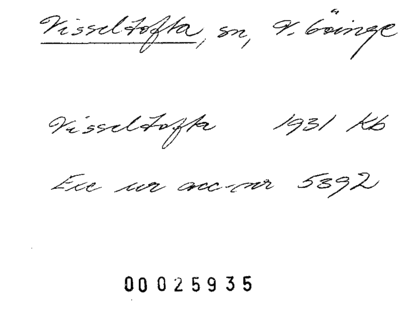 Visseltofta, sn, V. Göinge
Visseltofta 1931 Kb
Exc ur acc-nr 5392
00025935